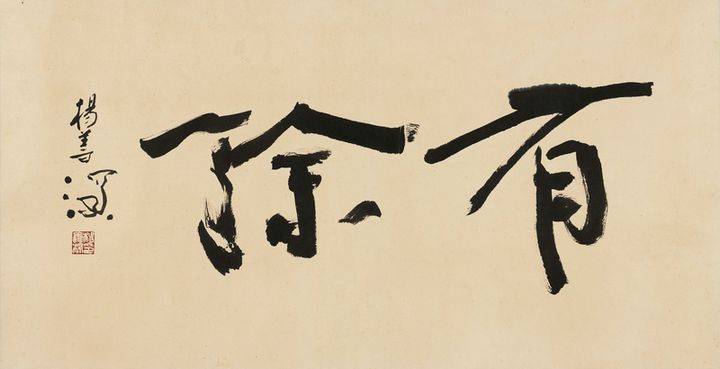 有餘
楊善深